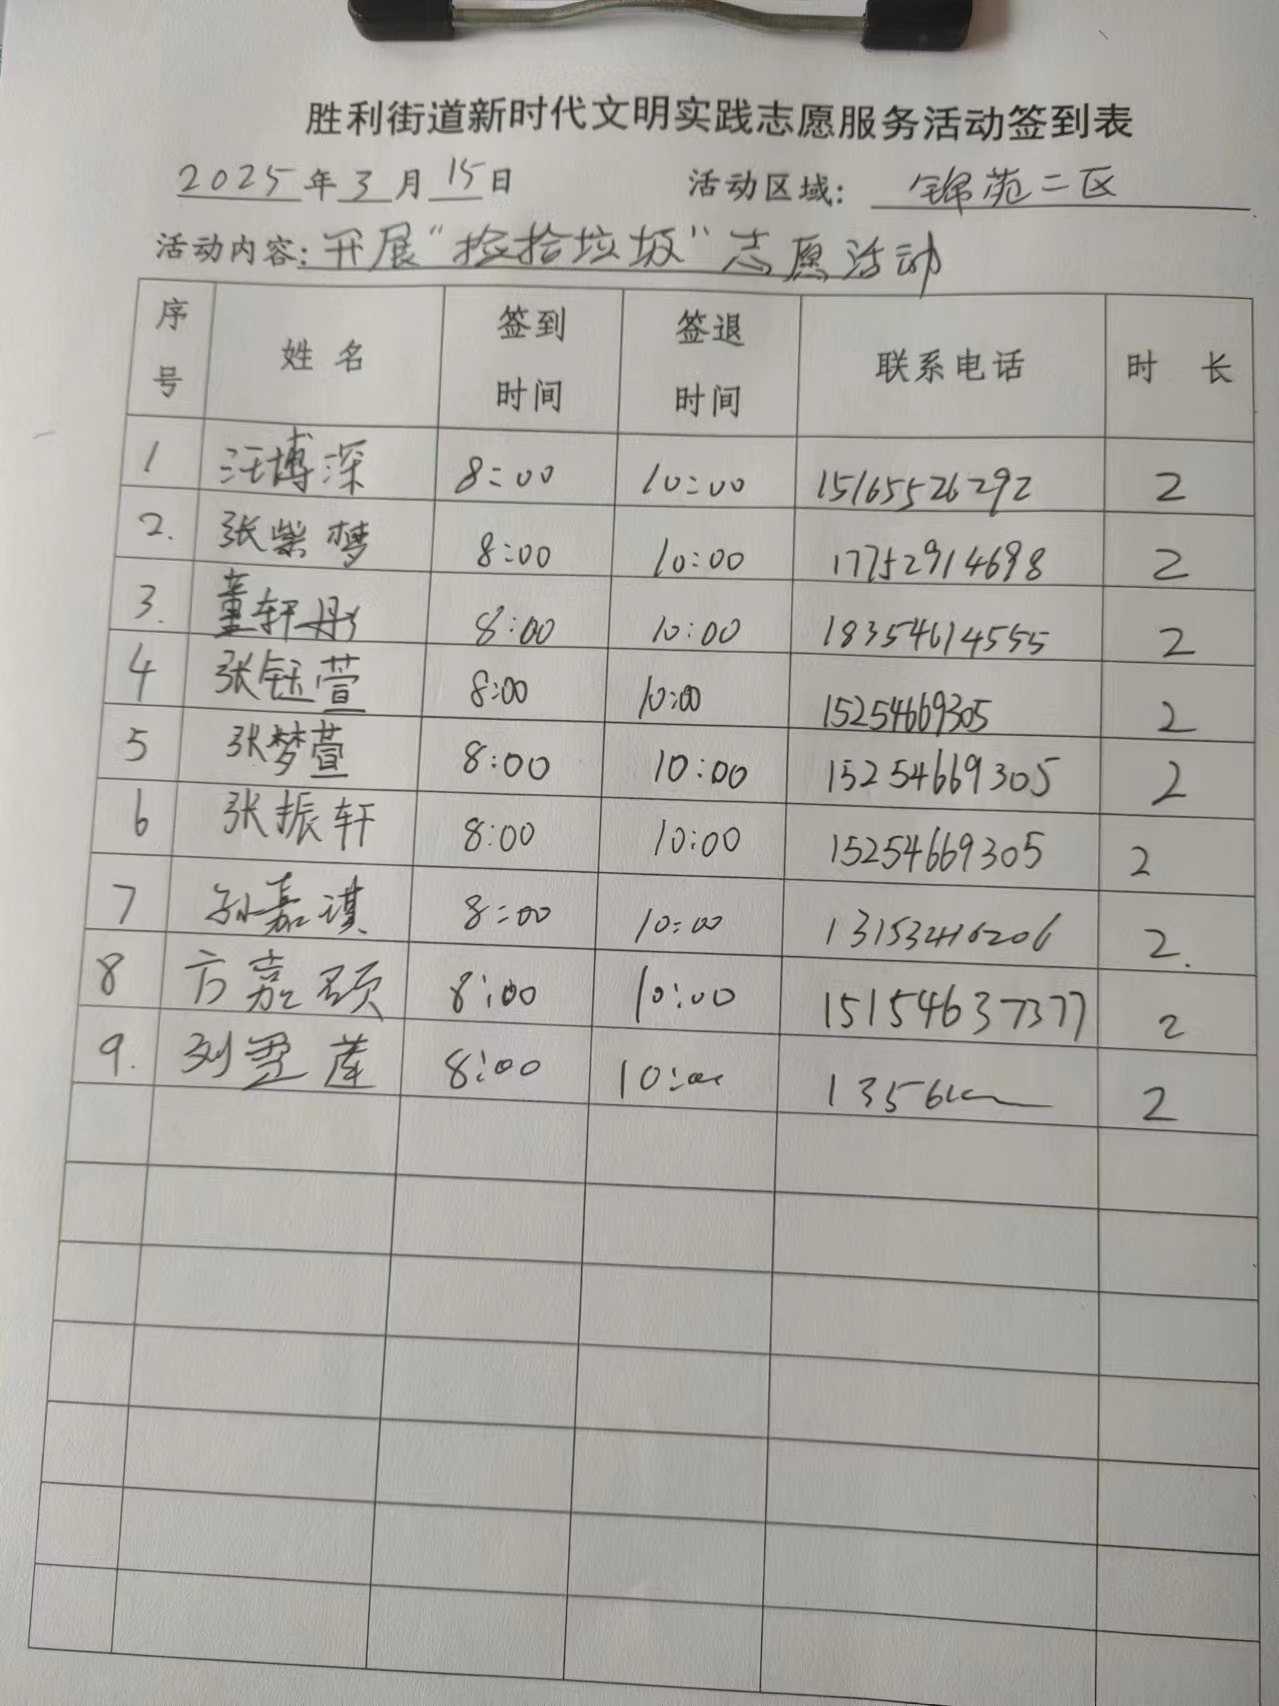 胜利街道新时代文明实践志愿服务活动签到表
2025年3月15日 活动区域: 锦苑二区
活动内容: 开展“捡拾垃圾”志愿活动
序号 姓名 签到时间 签退时间 联系电话 时长
1 汪博深 8:00 10:00 15165526292 2
2. 张紫梦 8:00 10:00 17752914698 2
3. 董轩彤 8:00 10:00 18354614555 2
4 张钰萱 8:00 10:00 15254669305 2
5 张梦萱 8:00 10:00 15254669305 2
6 张振轩 8:00 10:00 15254669305 2
7 孙嘉淇 8:00 10:00 13153416206 2.
8 方嘉硕 8:00 10:00 15154637377 2
9. 刘 8:00 10:00 2